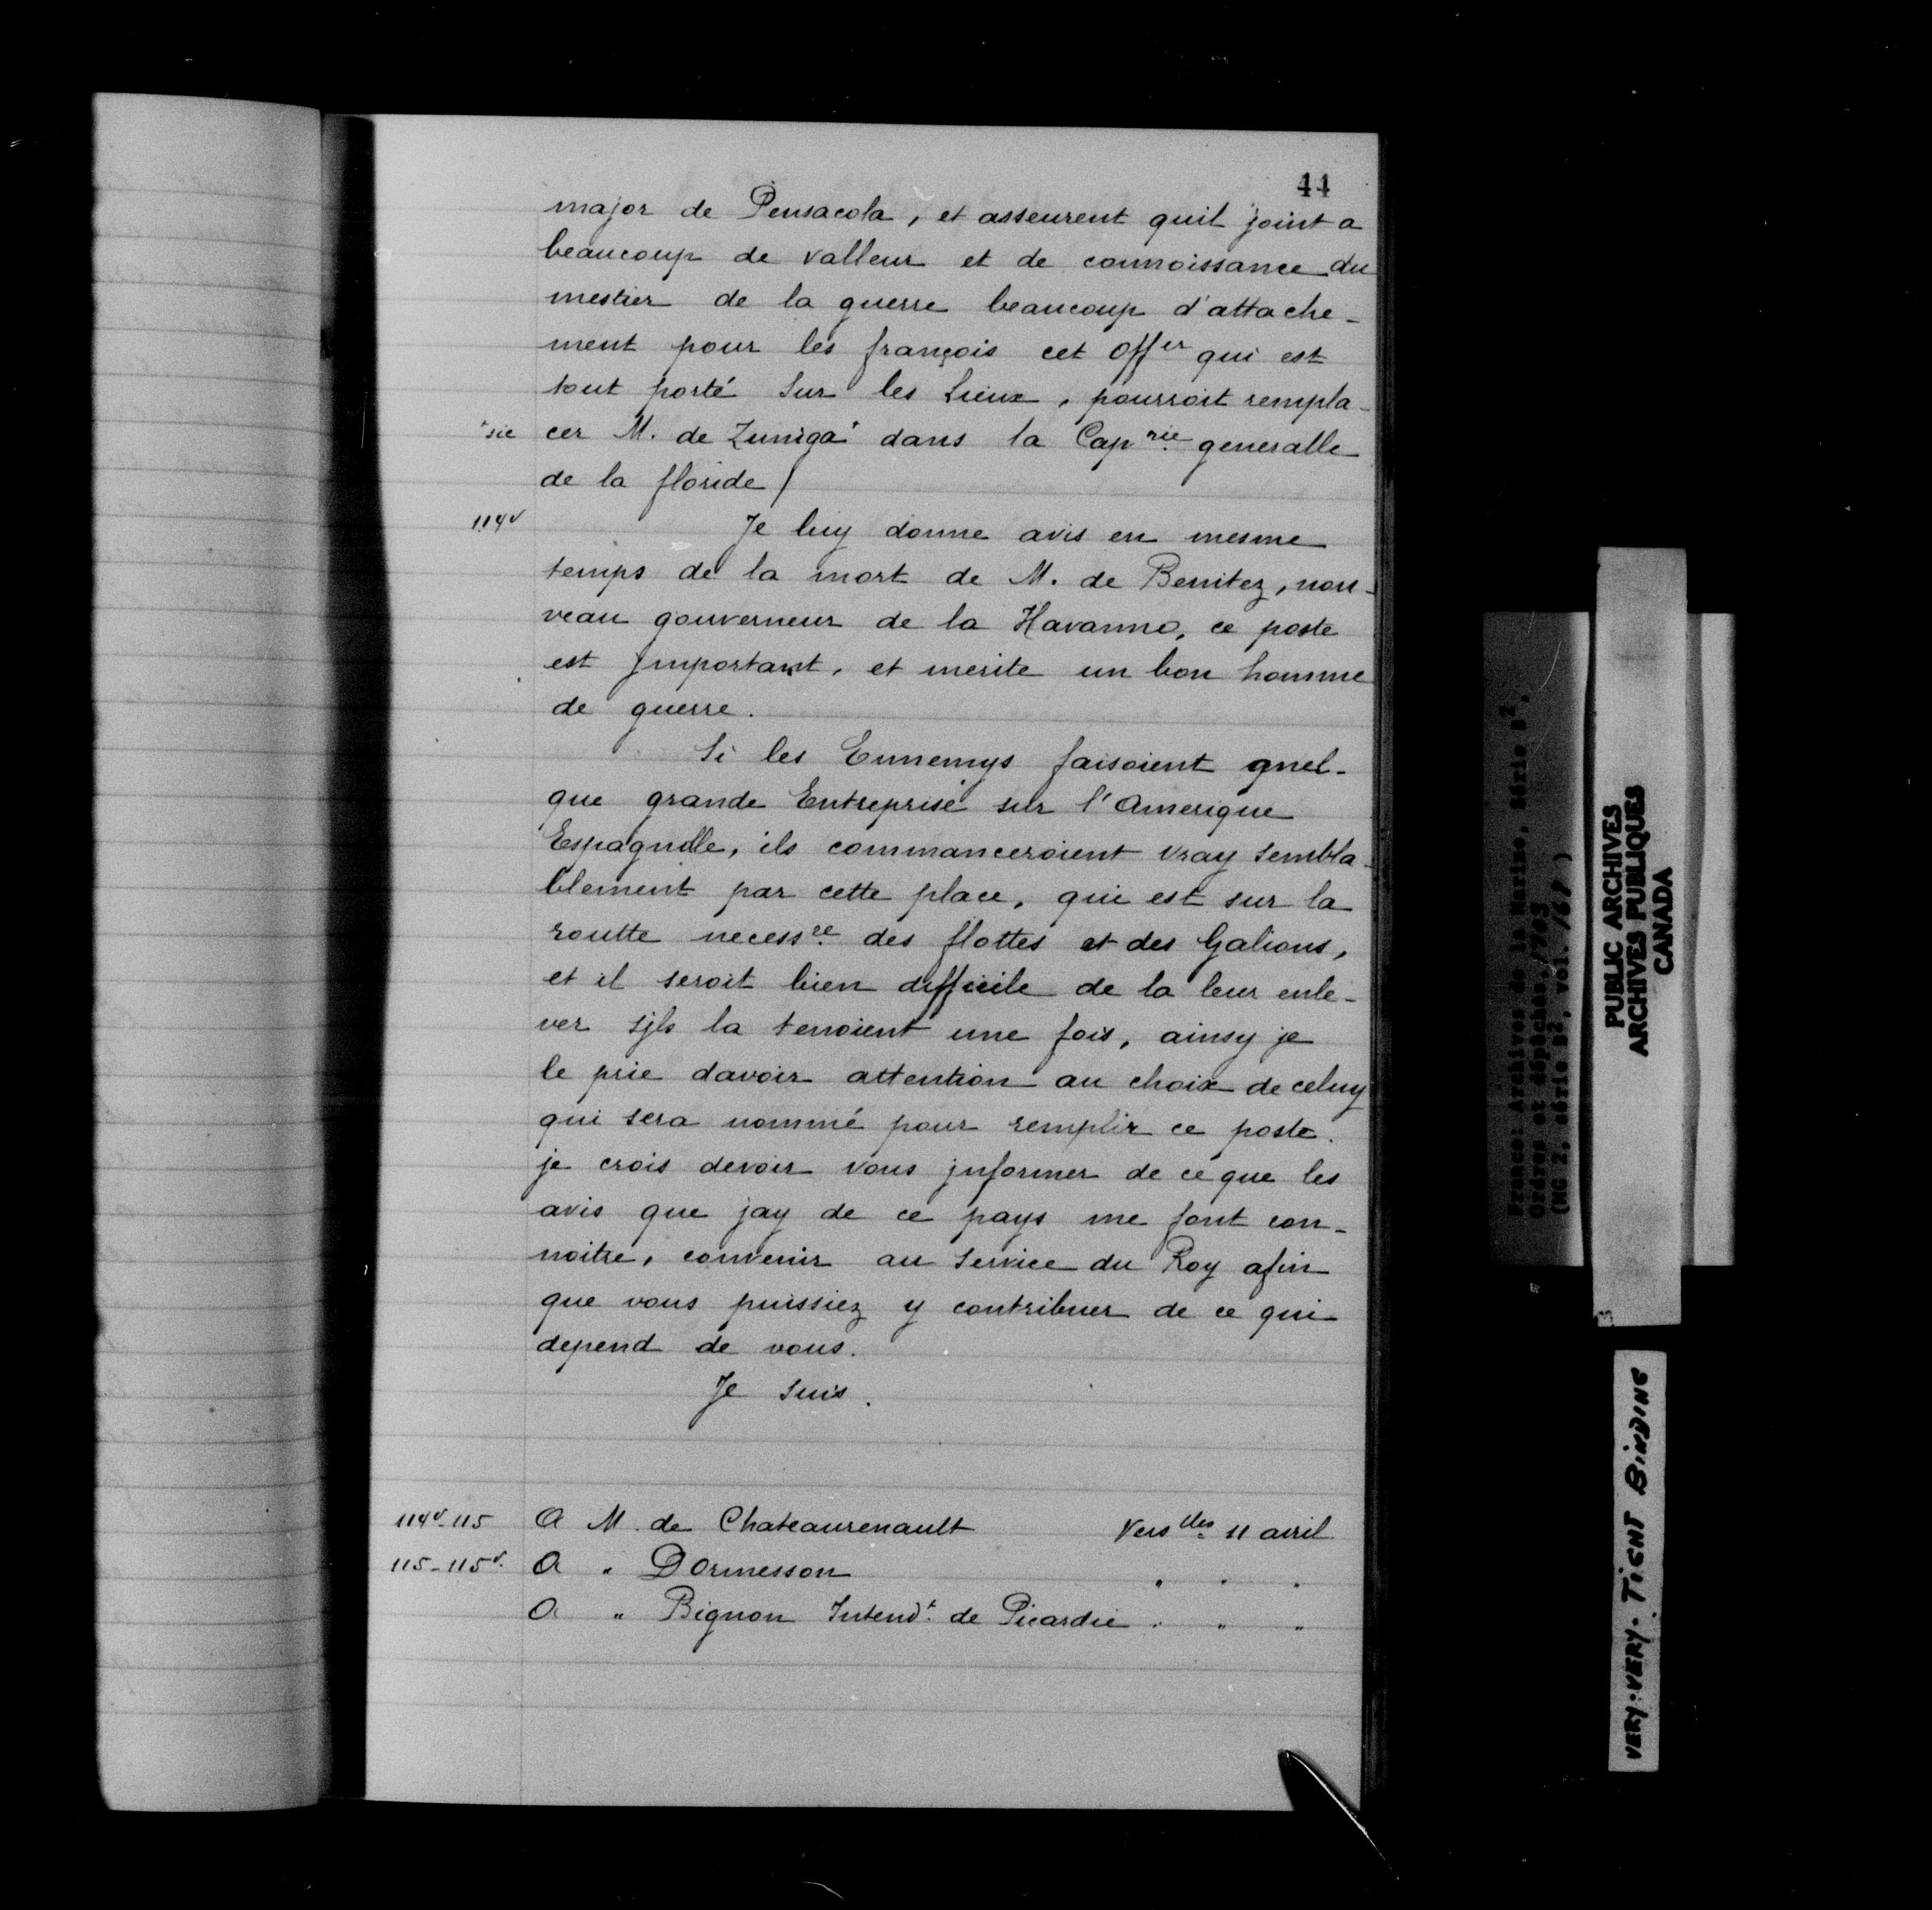 44
major de Pensacola, et asseurent quil joint a
beaucoup de valleur et de connoissance du
mestier de la guerre beaucoup d'attache-
ment pour les françois cet offer qui est
tout porté sur les Lieux, pourroit rempla-
+sic cer M. de Zuniga+ dans la Caprie generalle
de la floride/
114v Je luy donne avis en mesme
temps de la mort de M. de Benitez, nou-
veau gouverneur de la Havanne, ce poste
est jmportant, et merite un bon homme
de guerre.
Si les Ennemys faisoient quel-
que grande Entreprise sur l'Amerique
Espagnolle, ils commanceroient vray sembla-
blement par cette place, qui est sur la
routte necessre des flottes et des Galions,
et il seroit bien difficile de la leur enle-
ver sjls la tenoient une fois, ainsy je
le prie davoir attention au choix de celuy
qui sera nommé pour remplir ce poste.
je crois devoir vous jnformer de ce que les
avis que jay de ce pays me font con-
noitre, convenir au service du Roy afin
que vous puissiez y contribuer de ce qui
depend de vous.
Je suis.
114v-115 A M. de Chateaurenault Verslles 11 avril
115-115v. A " Dormesson " " "
A " Bignon Intendt. de Picardie " " "
France: Archives de la Marine, Série B2,
Ordres et dépêches, 1703
(MG 2, série B2, vol. 168)
PUBLIC ARCHIVES
ARCHIVES PUBLIQUES
CANADA
VERY-VERY-TIGHT BINDING